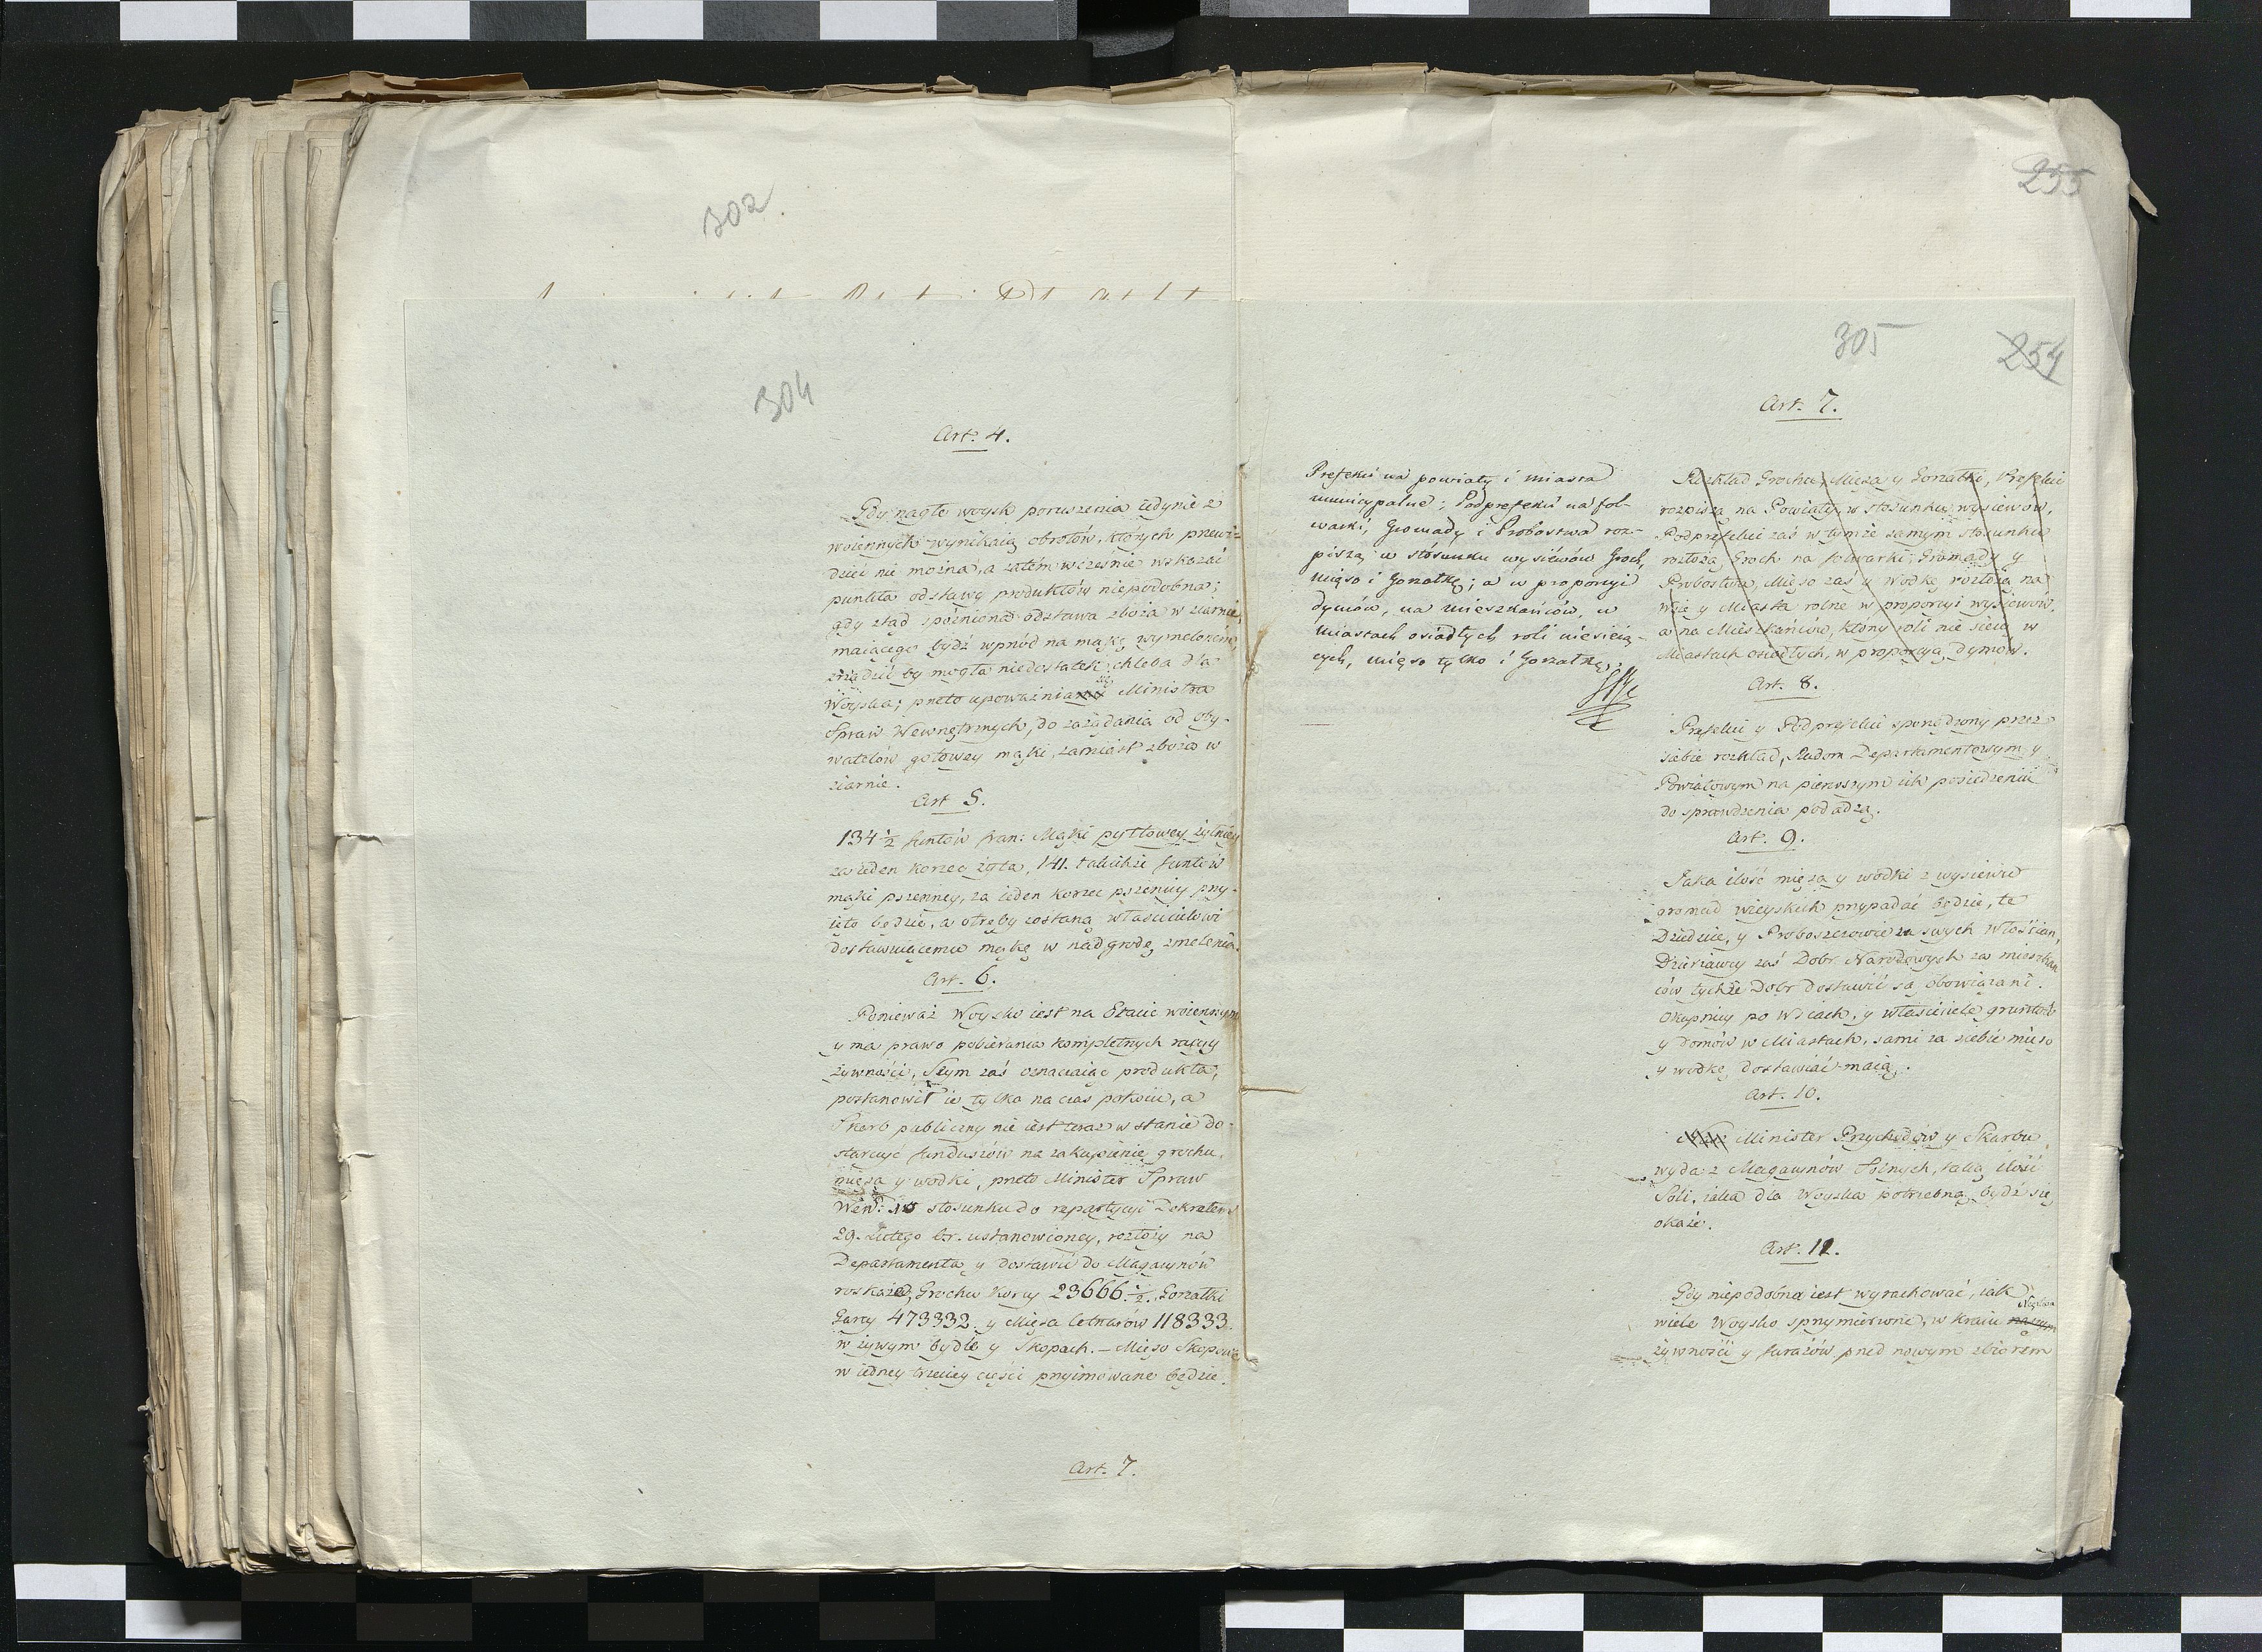 302.
304
Art. 4.
Gdy nagłe woysk poruszenia iedynie z
woiennych wynikaią obrotów, których przewi=
dzieć nie można, a zatém wcześnie wskazać
punkta odstawy produktów niepodobna;
gdy ztąd spóźniona odstawa zboża w ziarnie,
maiącego bydź wprzód na mąkę wymelonem,
zrządzić by mogła niedostatek chleba dla
Woyska; przeto upoważnia Ministra
Spraw Wewnętrznych, do zażądania od oby-
watelów gotowey mąki, zamiast zboża w
ziarnie.
Art 5.
134 1/2 funtów fran: Mąki pytlowey żytniey
za ieden korzec żyta, 141. takichże funtów
mąki pszenney, za ieden korzec pszenicy przy-
ięto będzie, a otręby zostaną właścicielowi
dostawuiącemu mąkę w nadgrodę zmelenia.
Art. 6.
Ponieważ Woysko iest na Etacie woiennym
y ma prawo pobierania kompletnych racyy
żywności, Seym zaś oznaczaiąc produkta,
postanowił ie tylko na czas pokoiu, a
Skarb publiczny nie iest teraz w stanie do-
starczyć funduszów na zakupienie grochu,
mięsa y wodki, przeto Minister Spraw
Wew: w stosunku do repartycyi Dekretem
29. Lutego b.r. ustanowioney, rozłoży na
Departamenta y dostawić do Magazynów
roskaże, Grochu Korcy 23666 1/2. Gorzałki
Garcy 473332. y Mięsa Cetnarów 118333.
w żywym bydle y Skopach. — Mięso Skopowe
w iedney trzeciey części przyimowane będzie.
Art. 7.
255
305
254
Art. 7.
Prefekci na powiaty i miasta
municypalne; Podprefekci na fol-
warki, Gromady i Probostwa roz-
piszą w stósunku wysiéwów Groch,
mięso i Gorzałkę; a w proporcyi
dymów, na mieszkańców, w
miastach osiadłych roli niesieią-
cych, mięso tylko i Gorzałkę.
Rozkład Grochu, Mięsa y Gorzałki, Prefekci
rozpiszą na Powiaty w stosunku wysiewów,
Podprefekci zaś w tymże samym stosunku
rozłożą Groch na folwarki, Gromady y
Probostwa, Mięso zaś y Wodkę rozłożą na
Wsie y Miasta rolne w proporcyi wysiewów,
a na Mieszkańców, którzy roli nie sieią w
Miastach osiadłych, w proporcyą dymów.
Art. 8.
Prefekci y Podprefekci sporządzony przez
siebie rozkład, Radom Departamentowym y
Powiatowym na pierwszym ich posiedzeniu
do sprawdzenia podadzą.
Art. 9.
Jaka ilość mięsa y wodki z wysiewu
gromad wieyskich przypadać będzie, te
Dziedzice, y Proboszczowie za swych Włościan,
Dzierżawcy zaś Dobr Narodowych za mieszkań
ców tychże Dobr dostawić są obowiązani.
Okupnicy po Wsiach, y właściciele gruntów
y domów w Miastach, sami za siebie mięso
y wodkę dostawiać maią.
Art. 10.
Minister Przychodów y Skarbu
wyda z Magazynów Solnych, taką ilość
Soli, iaka dla Woyska potrzebną bydź się
okaże.
Art. 11.
Gdy niepodobna iest wyrachować, iak
wiele Woysko sprzymierzone, w Kraiu naszym
żywności y furażów przed nowym zbiorem